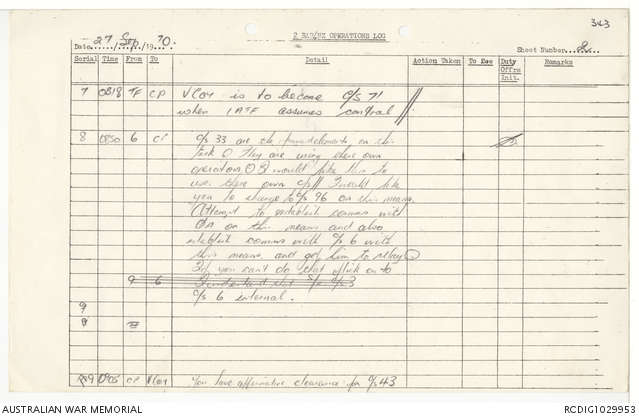 343
2 RAR/NZ OPERATIONS LOG
Date 27/Sep/1970.
Sheet Number 2
Serial Time From To Detail Action Taken To See Duty Offrs Init. Remarks
7 0818 TF CP VC04 is to become C/S 71
when 1ATF assumes control //
8 0850 6 CP C/S 33 are on
task they are using there own
operators I would like them to
use there own c/s // I would like
you to change to C/S 96 on this means.
Attempt to establish comms with
on this means and also
establish comms with C/S 6 with
this means, and get him to relay
If you can't do that flick on to
9 6
C/S 6 internal.
9
9
9 0905 CP VC04 You have affirmative clearance for C/S 43
AUSTRALIAN WAR MEMORIAL
RCDIG1029953